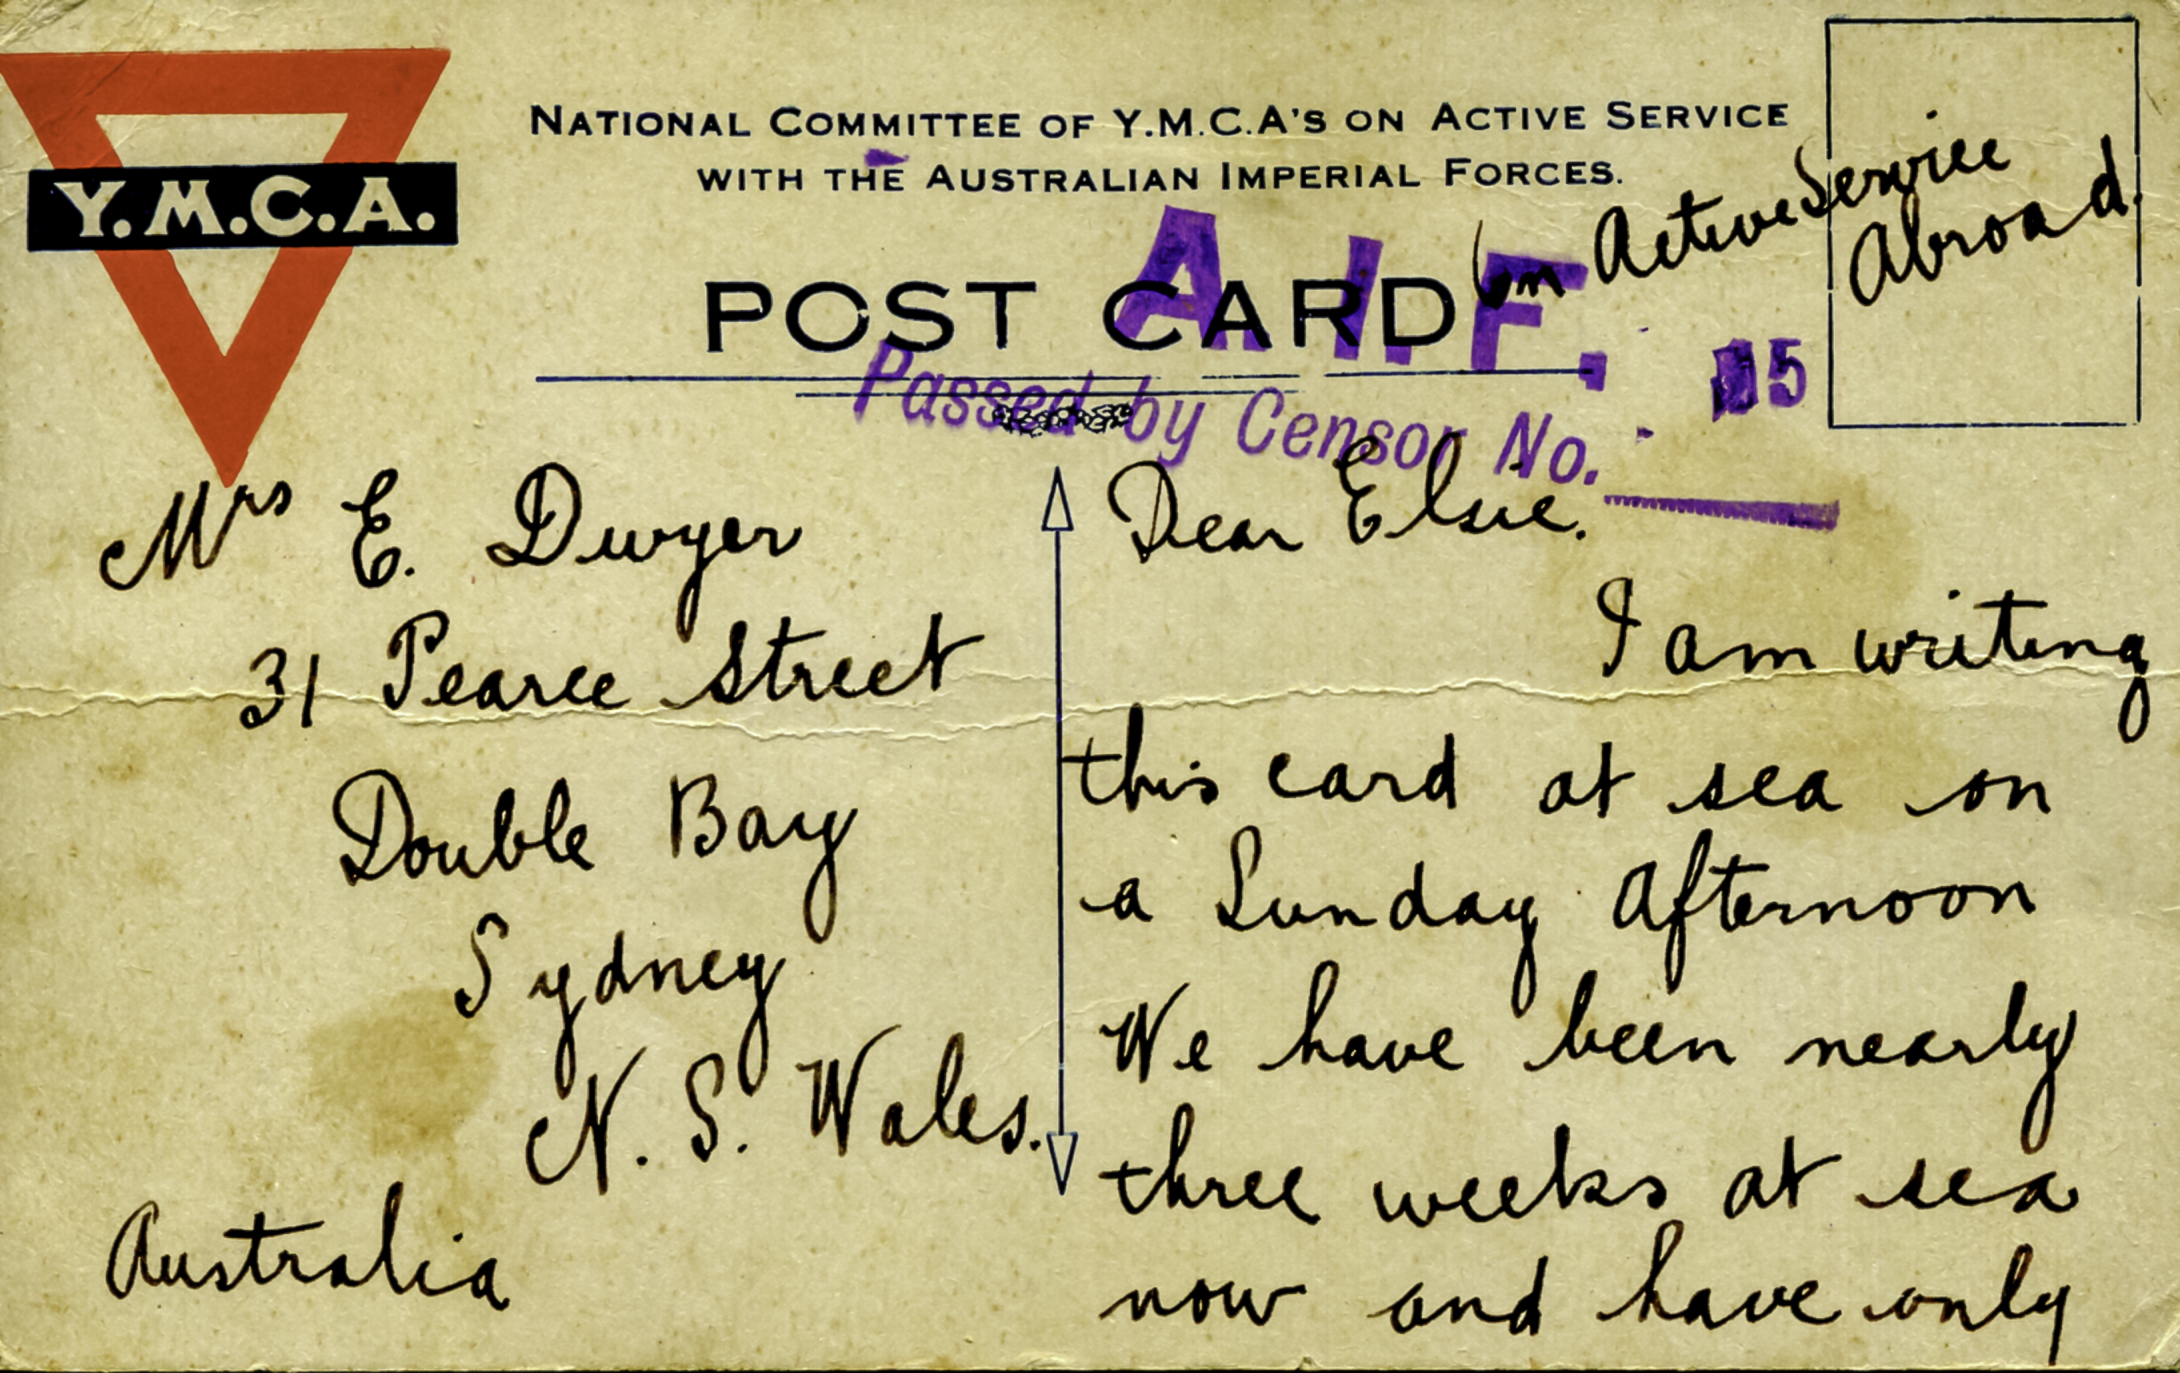 Y.M.C.A.
NATIONAL COMMITTEE OF Y.M.C.A'S ON ACTIVE SERVICE
WITH THE AUSTRALIAN IMPERIAL FORCES.
On Active Service
Abroad.
POST CARD
A.I.F.
Passed by Censor No.
Mrs E. Dwyer
31 Pearce Street
Double Bay
Sydney
N. S. Wales.
Australia
Dear Elsie.
I am writing
this card at sea on
a Sunday Afternoon
We have been nearly
three weeks at sea
now and have only